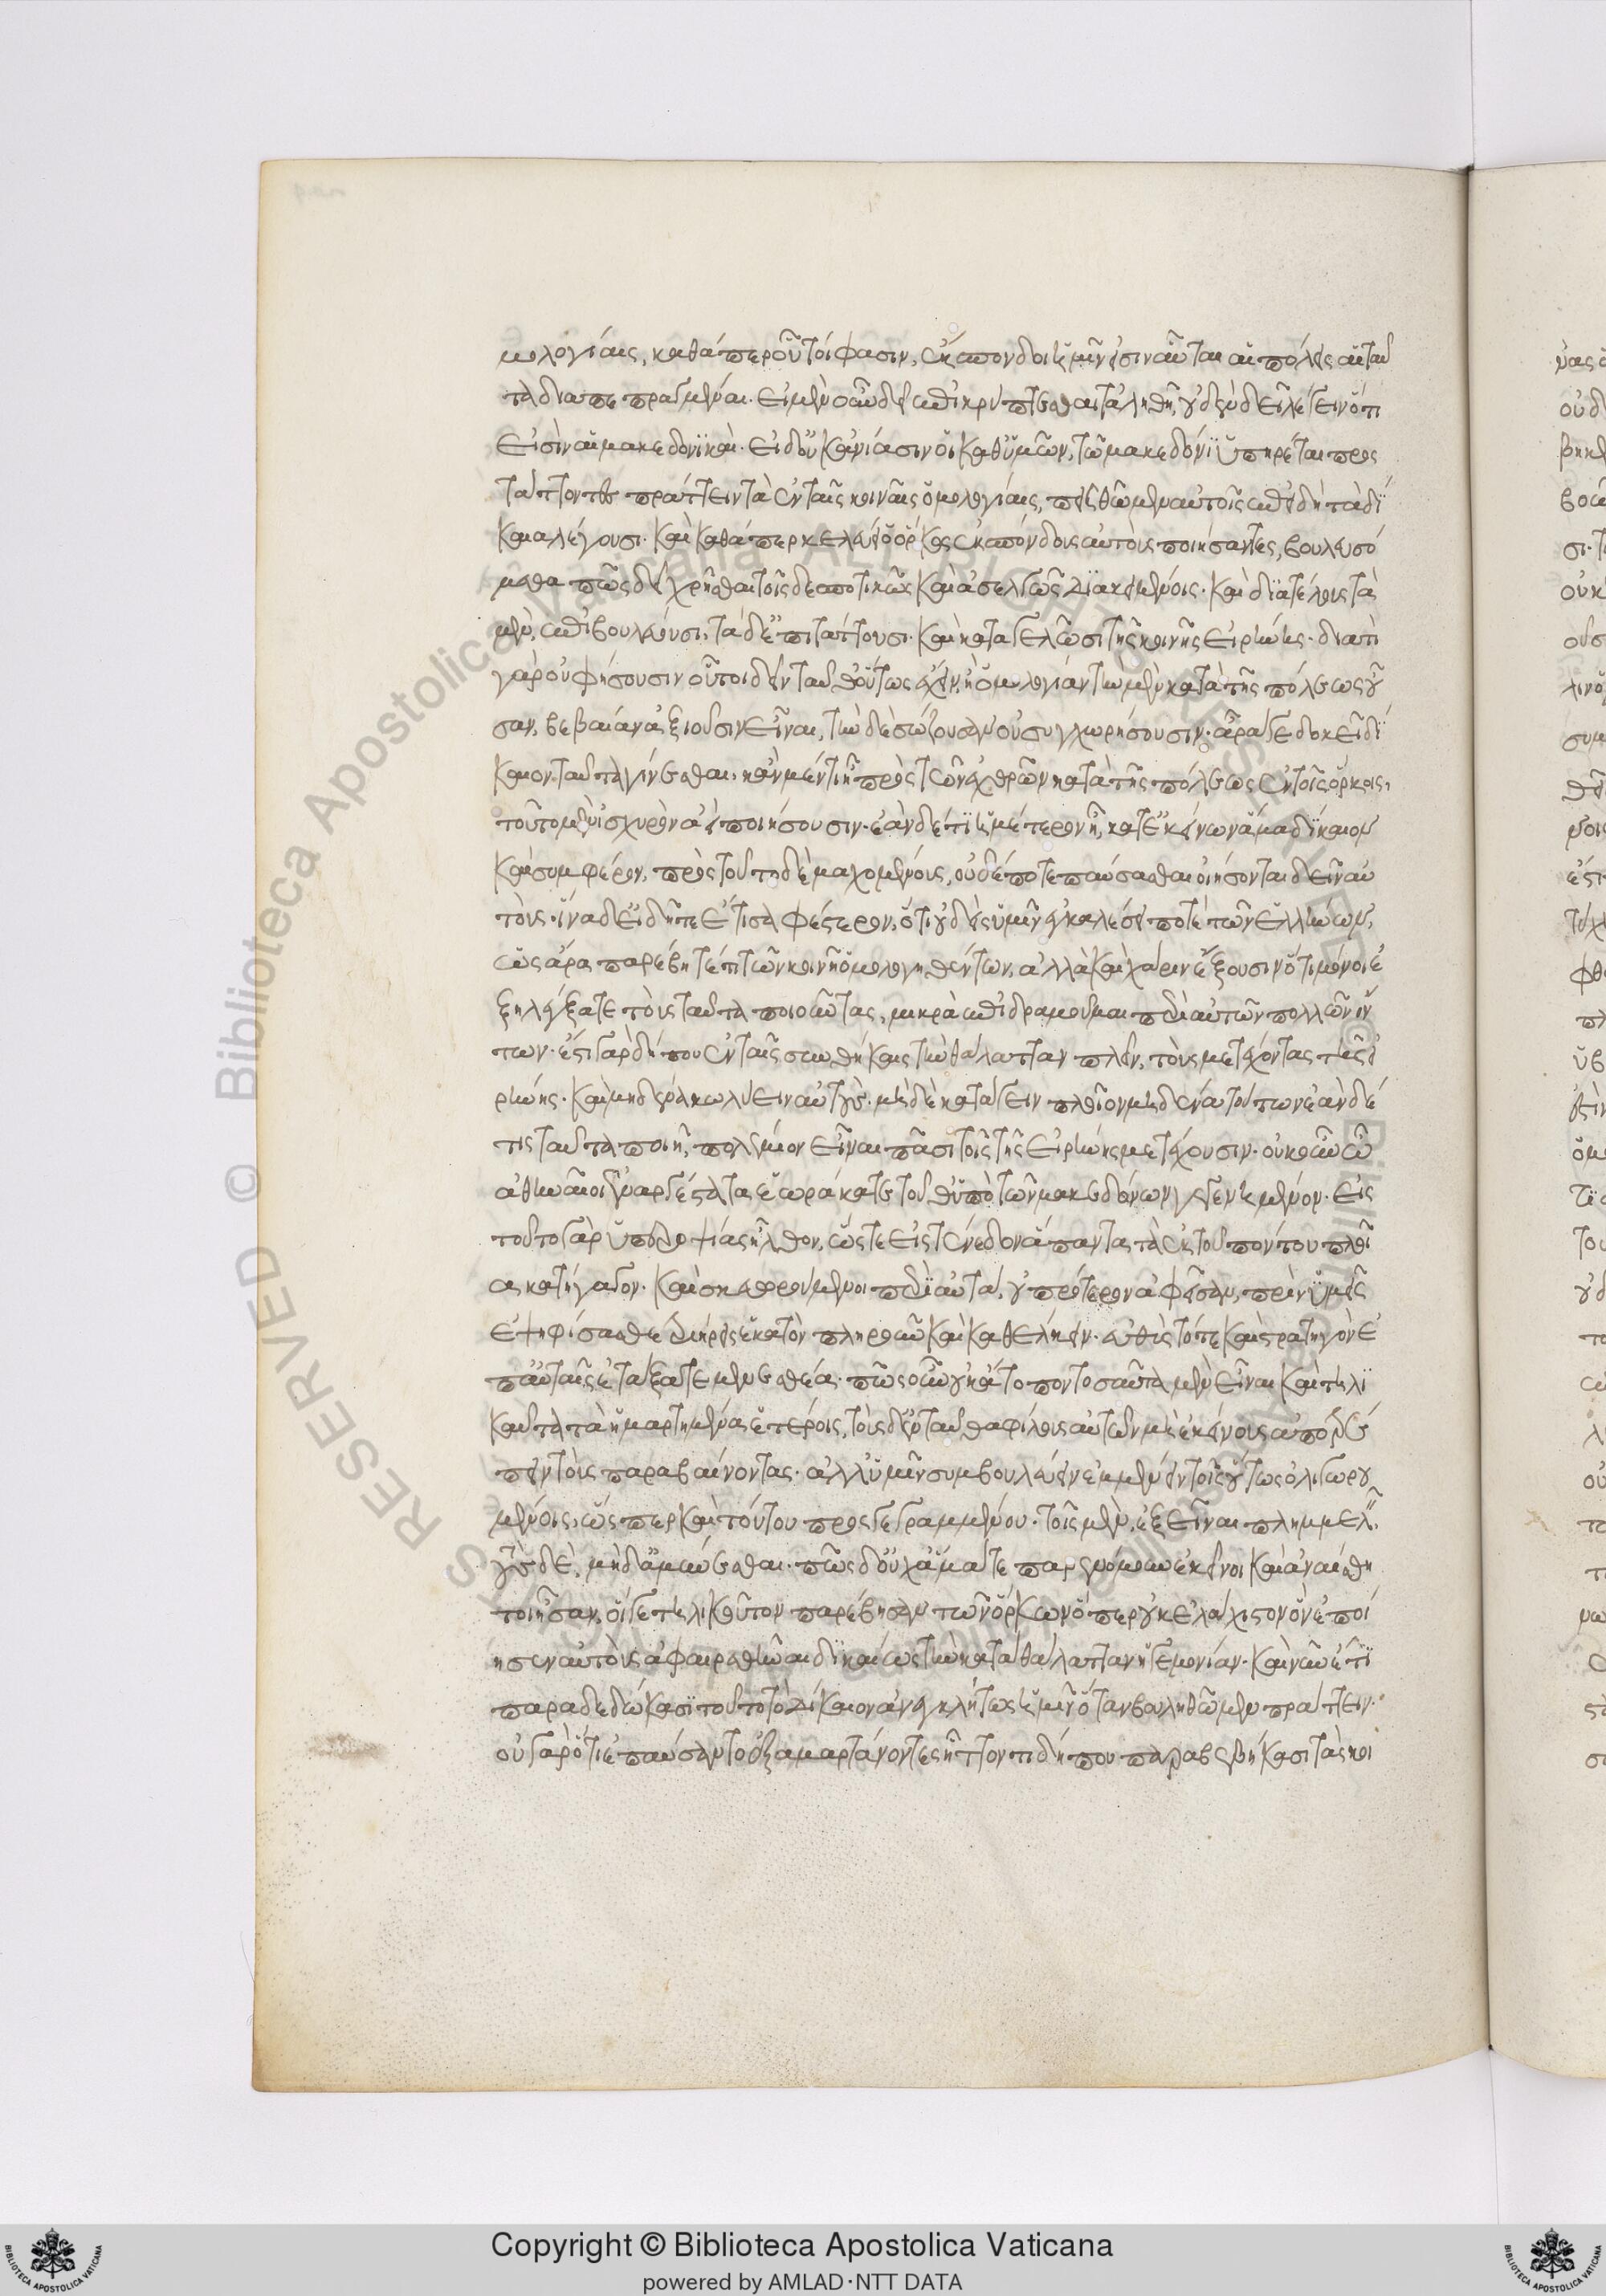 μολογίαις, καθάπερ οὗτοί φασιν, ἔκσπονδοι ἡμῖν εἰσιν αὗται αἱ πόλεις αἱ ταῦ
τα διαπεπραγμέναι. εἰ μὲν οὖν δεῖ ἐπικρύπτεσθαι τἀληθῆ, οὐδὲν δεῖ λέγειν ὅτι
εἰσὶν αἱ μακεδονικαί. εἰ δ' οὐκ ἀνιᾶσιν οἱ καθ' ὑμῶν, τῷ μακεδόνι ὑπηρέται προσ
ταττοντες πράττειν τὰ ἐν ταῖς κοιναῖς ὁμολογίαις, πεισθῶμεν αὐτοῖς ἐπειδὴ τὰ δί
καια λέγουσι. καὶ καθάπερ κελεύει ὁ ὅρκος ἐκσπόνδους αὐτοὺς ποιήσαντες, βουλευσό
μεθα πῶς δεῖ χρῆσθαι τοῖς δεσποτικῶς καὶ ἀσελγῶς διακειμένοις. καὶ διατέλους τὰ
μὲν, ἐπιβουλεύουσι, τὰ δ' ἐπιτάττουσι. καὶ καταγελῶσι τῆς κοινῆς εἰρήνης. διατί
γὰρ οὐ φήσουσιν οὗτοι δεῖν ταῦθ' οὕτως ἔχειν, ἢ ὁμολογίαν τὴν μὲν κατὰ τῆς πόλεως οὖ
σαν, βεβαίαν ἀξιοῦσιν εἶναι, τὴν δὲ σώζουσαν οὐ συγχωρήσουσιν. ἆρά γε δοκεῖ δί
καιον ταῦτα γίνεσθαι. κἂν μέν τι ᾖ πρὸς τῶν ἐχθρῶν κατὰ τῆς πόλεως ἐν τοῖς ὅρκοις,
τοῦτο μὲν ἰσχυρὸν ἀεὶ ποιήσουσιν. ἐὰν δέ τι ἡμέτερον ᾖ, κατ' ἐκείνων ἅμα δίκαιον
καὶ συμφέρον, πρὸς τοῦτο δὲ μαχομένους, οὐδέποτε παύσασθαι οἰήσονται δεῖν αὑ
τούς. ἵνα δ' εἰδῆτε ἔτι σαφέστερον, ὅτι οὐδεὶς ὑμῖν ἐγκαλέσει ποτὲ τῶν ἑλλήνων,
ὡς ἄρα παρέβητέ τι τῶν κοινῇ ὁμολογηθέντων, ἀλλὰ καὶ χάριν ἕξουσιν ὅτι μόνοι ἐ
ξηλέγξατε τοὺς ταῦτα ποιοῦντας, μικρὰ ἐπιδραμοῦμαι περὶ αὐτῶν πολλῶν ὄν
των. ἔστι γὰρ δήπου ἐν ταῖς συνθήκαις τὴν θάλατταν πλεῖν, τοὺς μετέχοντας τῆς εἰ
ρήνης. καὶ μηδένα κωλύειν αὐτοὺς. μηδὲ κατάγειν πλοῖον μηδενὸς τούτων ἐὰν δέ
τις ταῦτα ποιῇ, πολέμιον εἶναι πᾶσι τοῖς τῆς εἰρήνης μετέχουσιν. οὐκοῦν ὦ
ἀθηναῖοι ἐναργέστατα ἑωράκατε τοῦθ' ὑπὸ τῶν μακεδόνων γεγενημένον. εἰς
τοῦτο γὰρ ὑπεροψίας ἦλθον, ὥστε εἰς τένεδον ἅπαντα τὰ ἐκ τοῦ πόντου πλοῖ
α κατήγαγον. καὶ σκευωρούμενοι περὶ αὐτὰ, οὐ πρότερον ἀφεῖσαν, πρὶν ὑμεῖς
ἐψηφίσασθε τριήρεις ἑκατὸν πληροῦν καὶ καθέλκειν. εὐθὺς τότε καὶ στρατηγὸν ἐ
π' αὐταῖς ἐτάξατε μενεσθέα. πῶς οὖν οὐκ ἄτοπον τοσαῦτα μὲν εἶναι καὶ τηλι
καῦτα τὰ ἡμαρτημένα ἑτέροις, τοὺς δ' ἐνταῦθα φίλους αὐτῶν μὴ ἐκείνους ἀποτρέ
πειν τοὺς παραβαίνοντας. ἀλλ' ὑμῖν συμβουλεύειν ἐμμένειν τοῖς οὕτως ὀλιγωρου
μένοις, ὥσπερ καὶ τούτου προσγεγραμμένου. τοῖς μὲν, ἐξεῖναι πλημμελεῖν,
τοὺς δὲ, μηδ' ἀμύνεσθαι. πῶς δ' οὐχ ἅμα τε παρενόμουν ἐκεῖνοι καὶ ἀναίσθη
τοι ἦσαν, οἵ γε τηλικοῦτον παρέβησαν τῶν ὅρκων ὅπερ οὐκ ἐλάχιστον ὃν ἐποί
ησεν αὐτοὺς ἀφαιρεθῆναι δικαίως τὴν κατὰ θάλατταν ἡγεμονίαν. καὶ νῦν ἔτι
παραδεδώκασι τοῦτο τὸ δίκαιον ἀνεγκλήτως ἡμῖν ὅταν βουληθῶμεν πράττειν.
οὐ γὰρ ὅτι ἐπαύσαντο ἐξαμαρτάνοντες ἧττόν τι δήπου παραβεβήκασι τὰς κοι